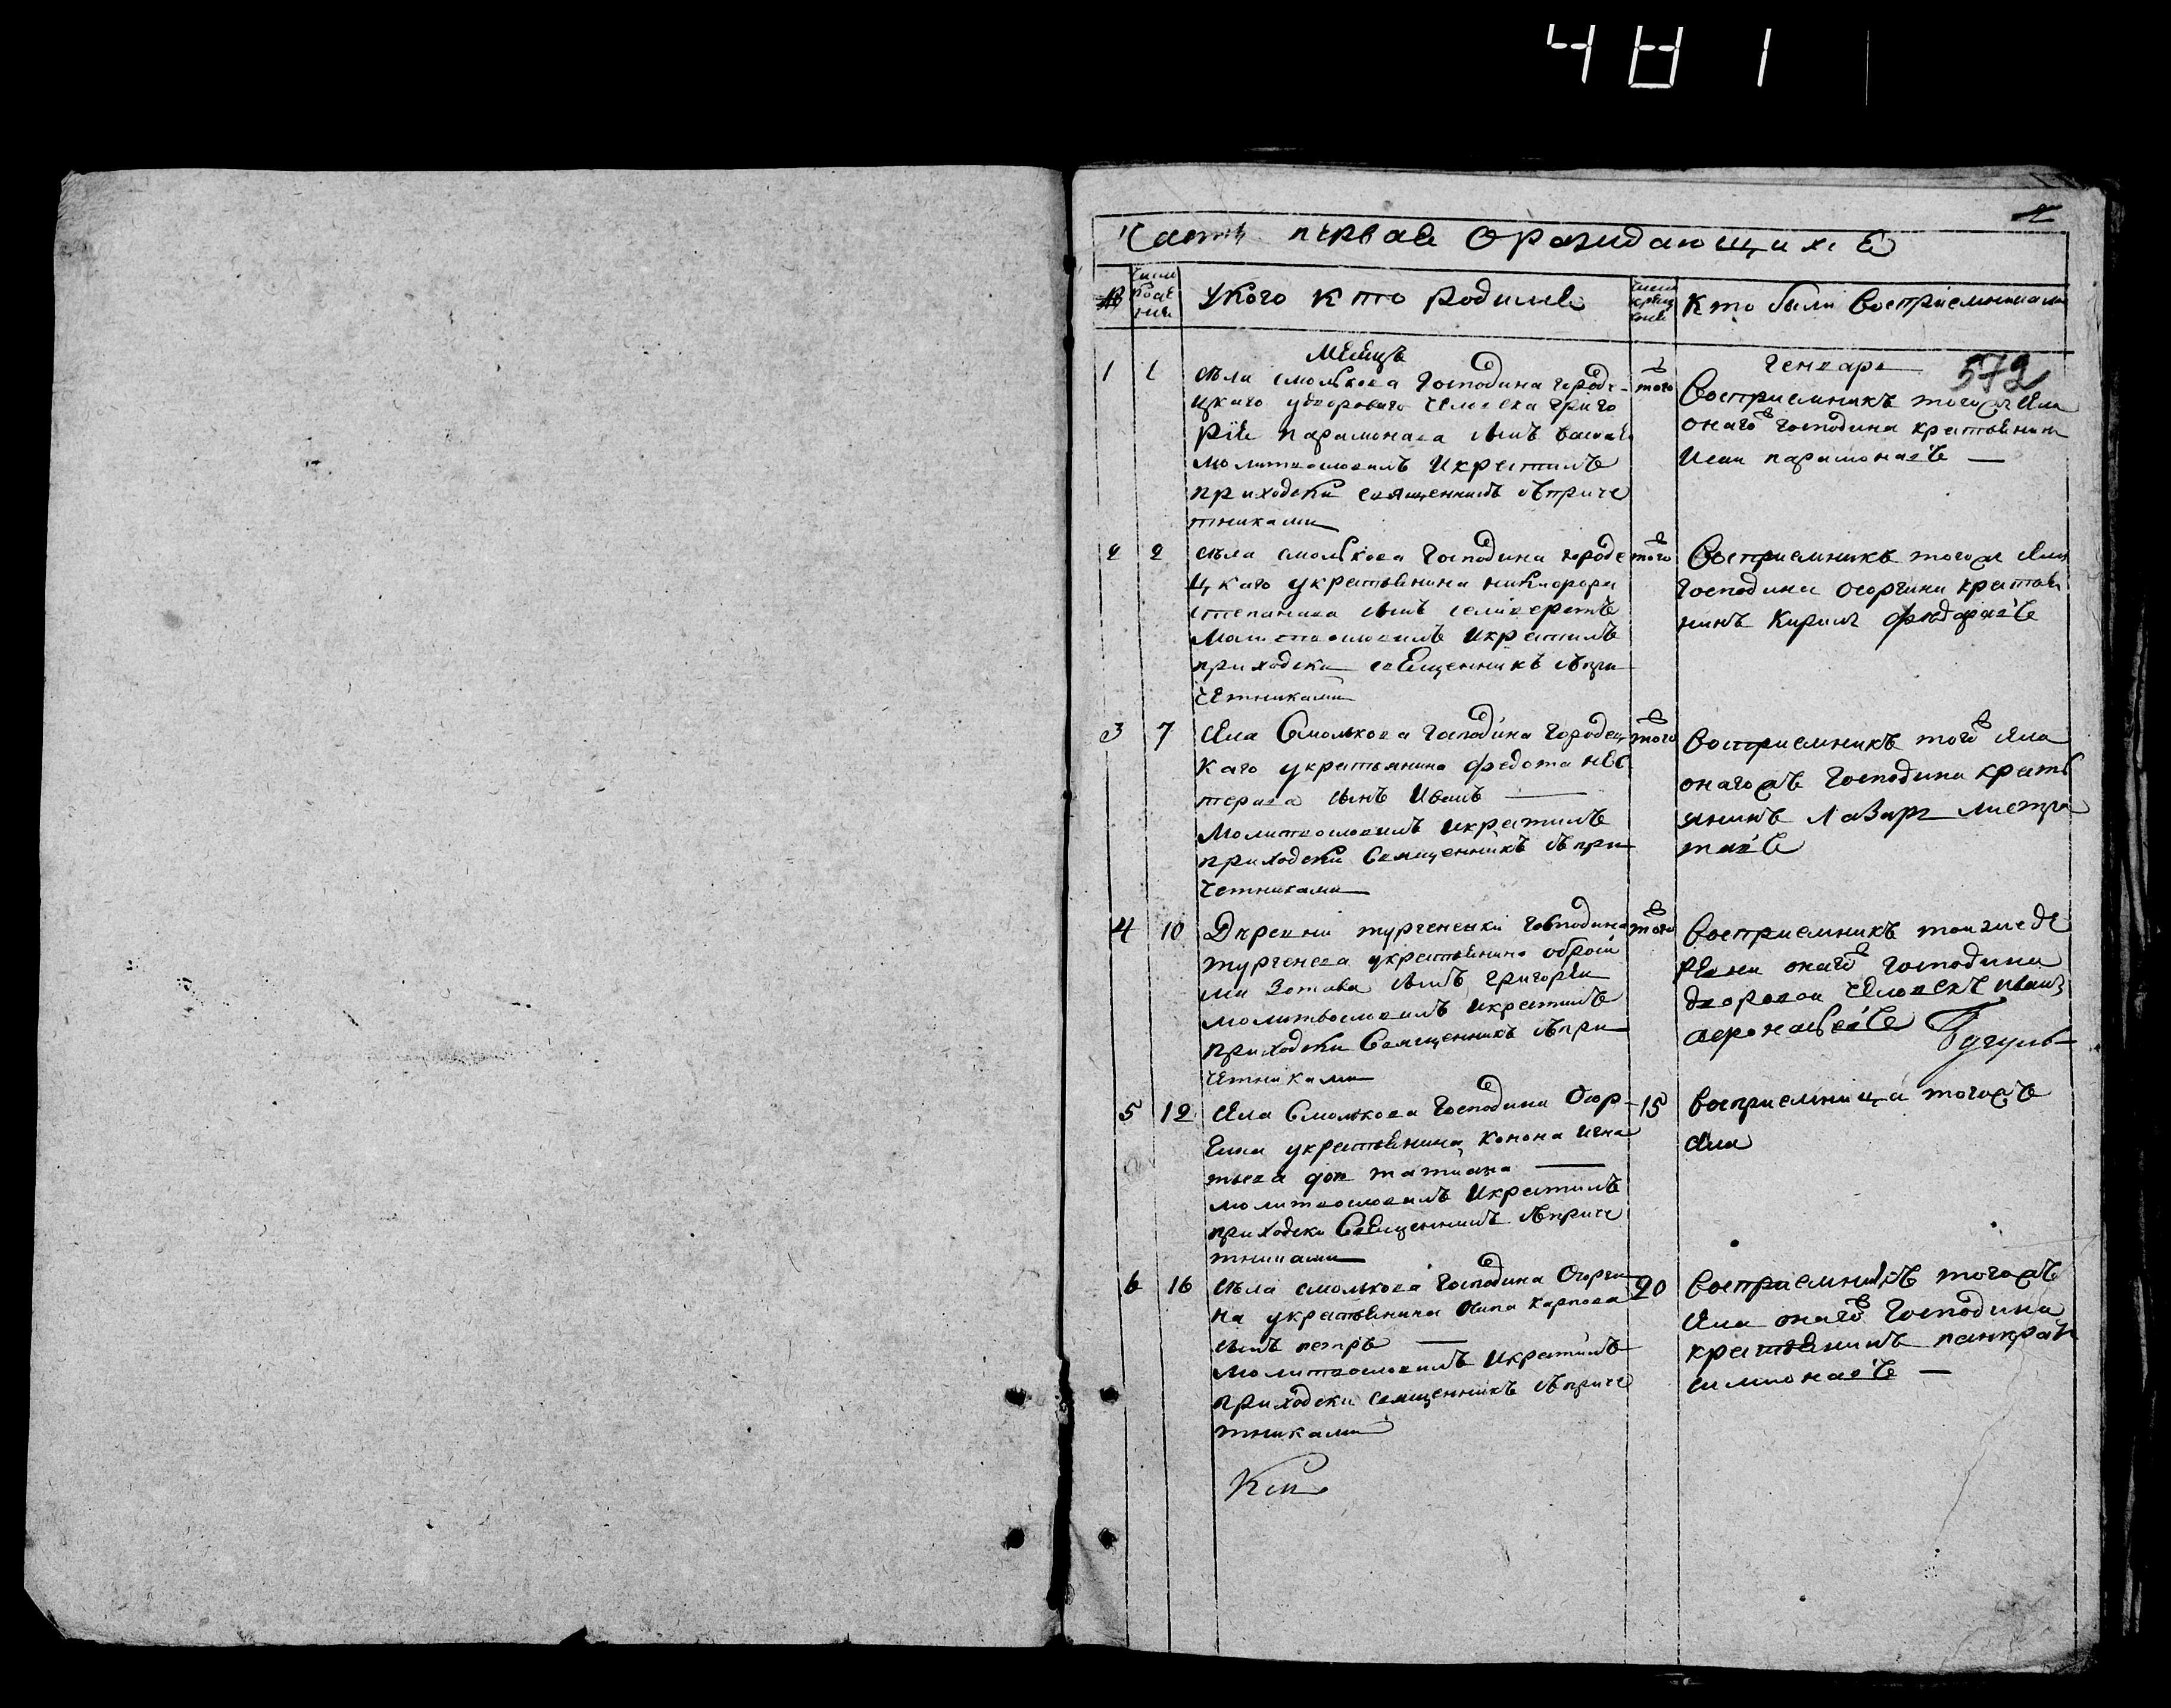 481
2
Часть первая о раждающихся
№
числ рожде ние
у кого кто родился
числ креще ние
кто были восприемниками
Месяцъ
Генварь
572
1
1
села смолькова Господина городе-
цкаго удвороваго человека григо
рия парамонава сынъ василей
молитвословилъ и крестилъ
приходски священникъ съприче
тниками
того
Восприемникъ тогож села
онаго господина крестьянин
парамонавъ
2
2
села смолькова Господина городе
цкаго укрестьянина никифора
степанава сынъ селиверстъ
молитвословилъ и крестилъ
приходски священникъ съпри
четниками
того
Восприемникъ тогож села
господина осоргина крестья
нинъ Кирилъ федоравъ
3
7
села Смолькова Господина Городец
каго укрестьянина федота нес
терава сынъ Иванъ
молитвословилъ и крестилъ
приходски священникъ съпри
четниками
того
восприемникъ того села
онагожъ Господина кресть
янинъ Лазарь
4
10
Деревни тургеневки Господина
тургенева укрестьянина
Зотава сынъ григорей
молитвословилъ и крестилъ
приходски священникъ съпри
четниками
того
восприемникъ тоижде де
ревни онаго господина
дворовои человекъ иванъ
5
12
села Смолькова Господина Осор-
гина укрестьянина конона игна
тьева дочь татиана
молитвословилъ и крестилъ
приходски священникъ съприче
тниками
15
восприемница тогожъ
села
6
16
села смолькова Господина Осорги
на укрестьянина Осипа карпова
сынъ петръ
молитвословилъ и крестилъ
приходски священникъ съприче
тниками
20
восприемникъ тогожъ
села онаго Господина
крестьянинъ панкрати
симионавъ